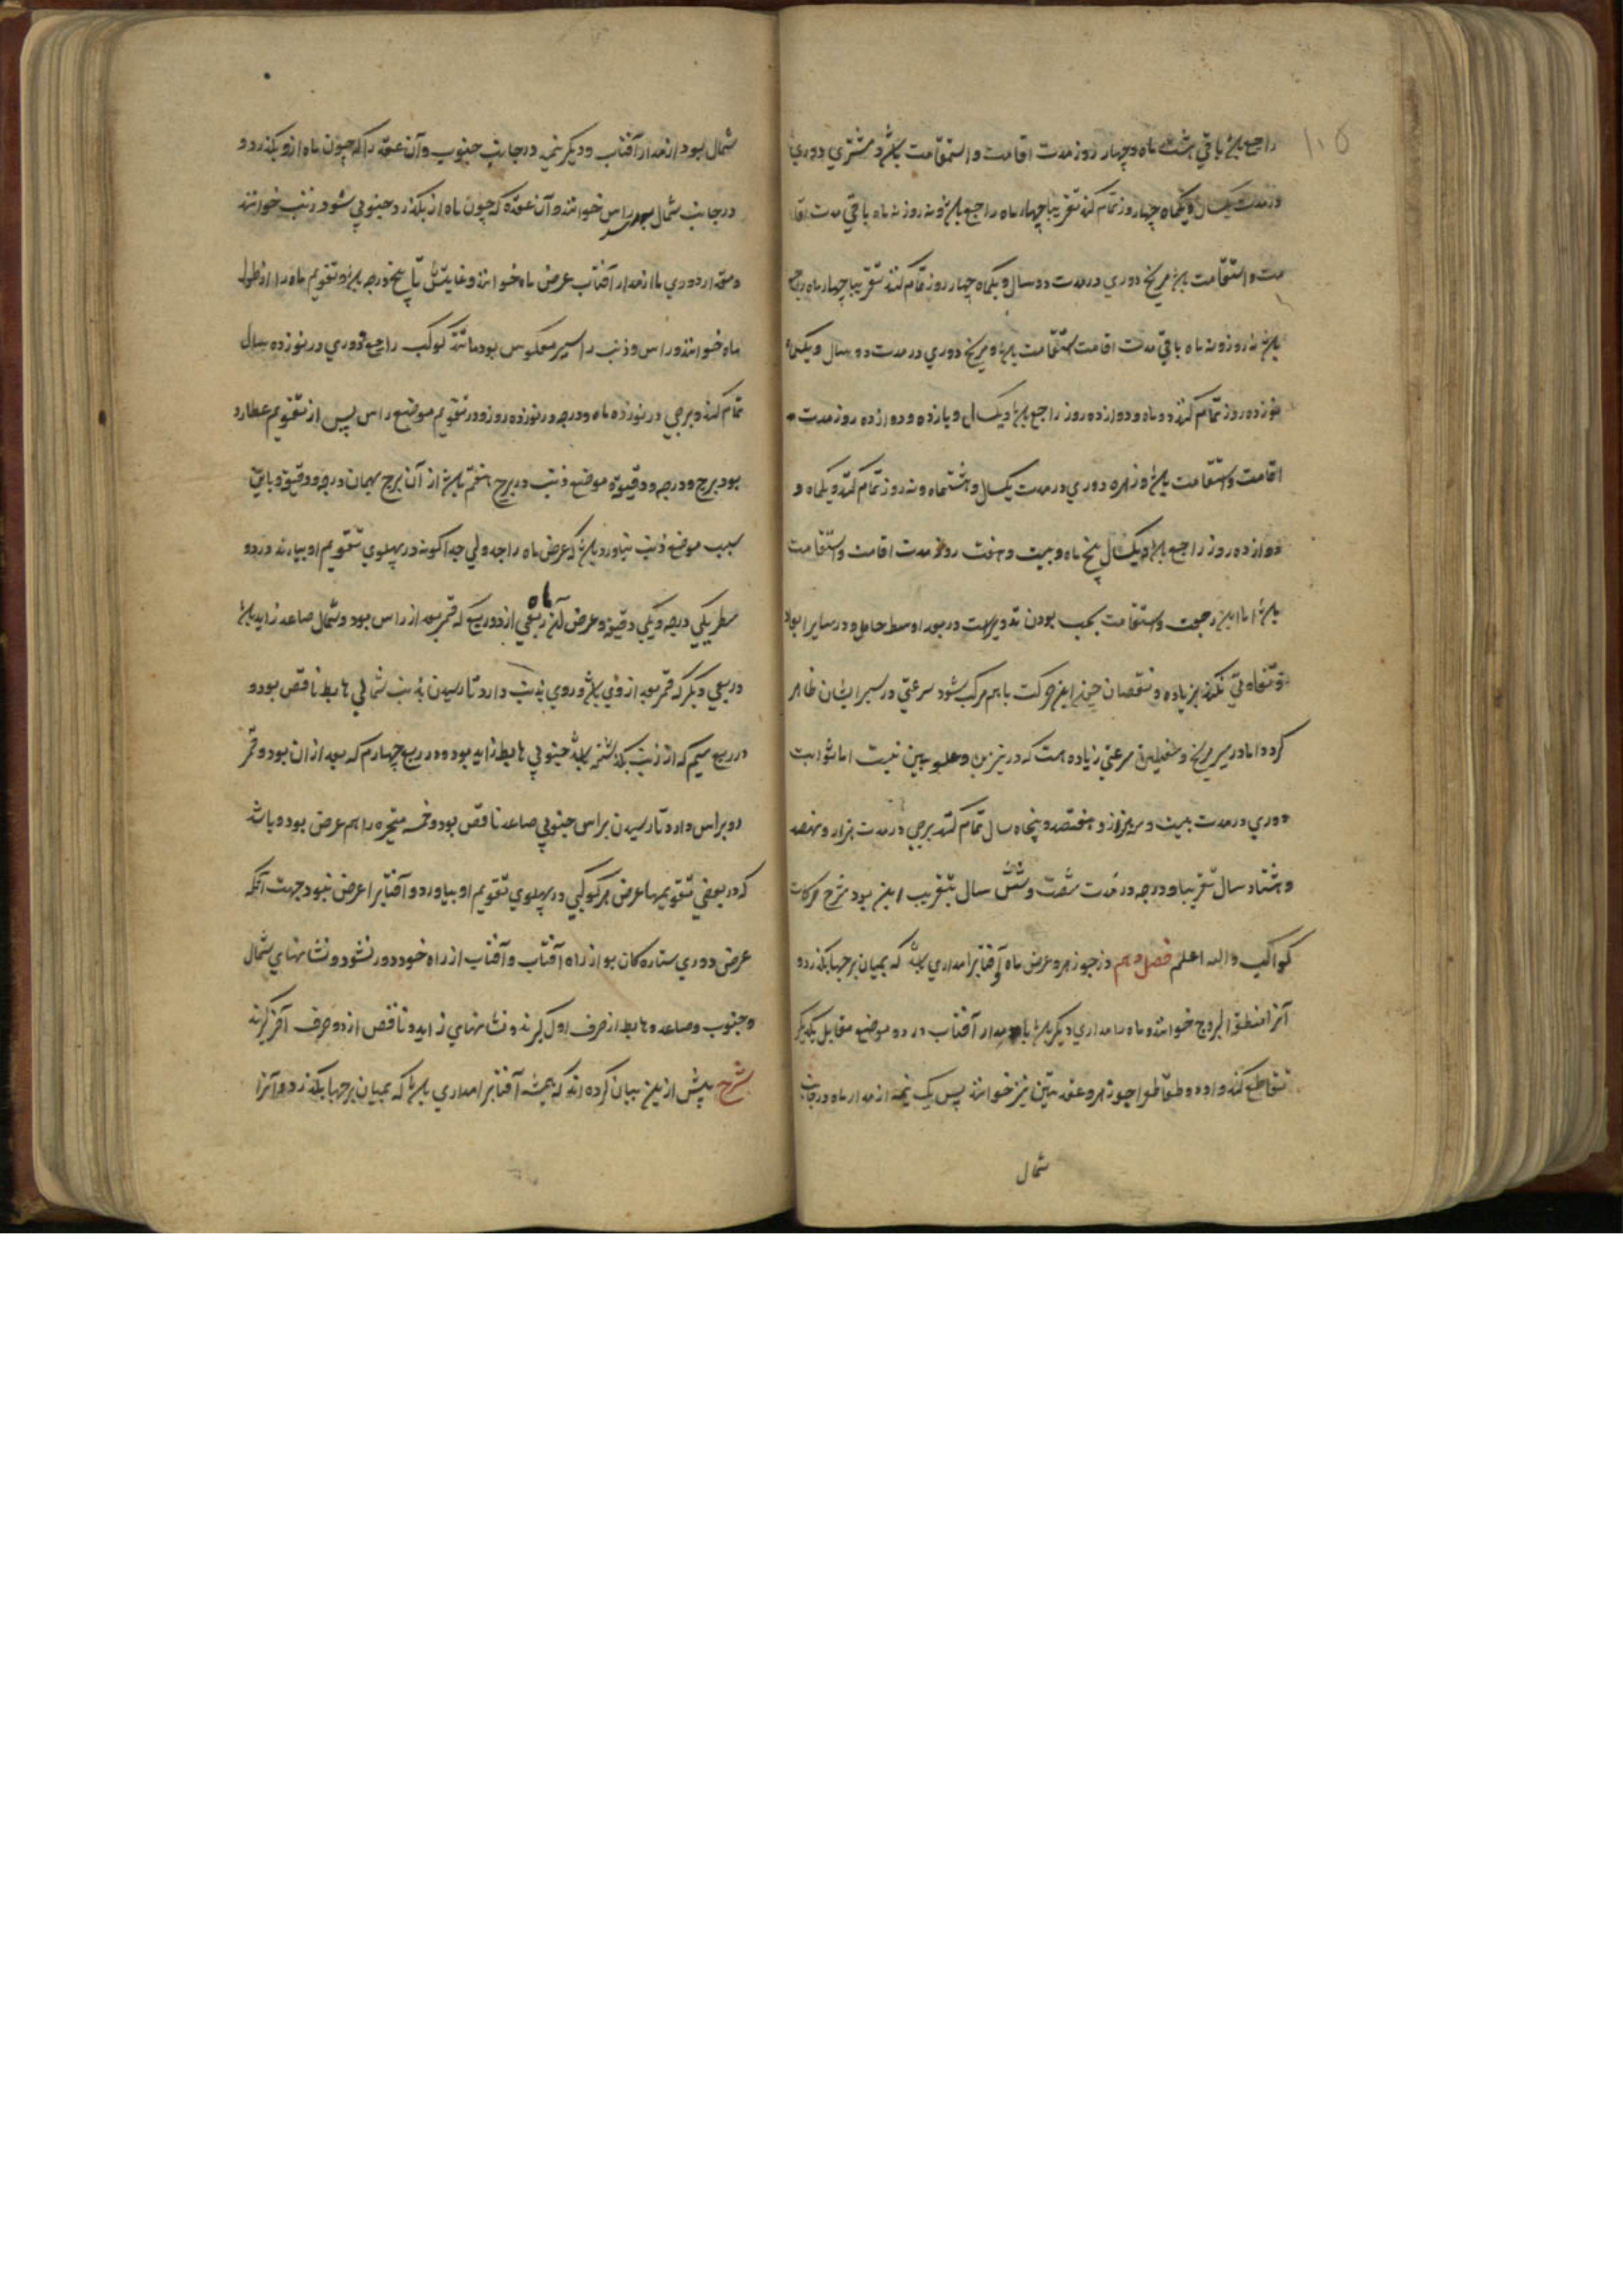 ۱۰۵
راجع باشد باقی هشت ماه و چهار روز مدت اقامت و استقامت باشد و مشتری دوری
در مدت یکسال و یکماه چهار روز تمام کند تقریبا چهار ماه راجع باشد و نه روز نه ماه باقی مدت اقا
مت و استقامت باشد مریخ دوری در مدت دو سال و یکماه چهار روز تمام کند تقریبا چهار ماه راجع
باشد نه روز و نه ماه باقی مدت اقامت استقامت باشد و مریخ دوری در مدت دو سال و یکماه
نوزده روز تمام کند دو ماه و دوازده روز راجع باشد و یکسال و یازده و دوازده روز مدت
اقامت و استقامت باشد و زهره دوری در مدت یکسال و هشتماه و نه روز تمام کند و یکماه و
دوازده روز راجع باشد و یکسال پنج ماه و بیست و هفت روز مدت اقامت و استقامت
باشد اما این رجعت و استقامت بحسب بودن تدویرست در بعد اوسط حامل و در سایر ابعاد
تفاوتی نکند بزیاده و نقصان چون این حرکت باهم مرکب شود سرعتی در سیر ایشان ظاهر
کردد اما در سیر مریخ و سفلیین سرعتی زیاده هست که در نیرین و علویین نیست اما ثوابت
دوری در مدت بیست و سه هزار و هفتصد و پنجاه سال تمام کند برجی در مدت هزار و نهصد
و هشتاد سال تقریبا و درجه در مدت شصت و شش سال بتقریب این بود شرح حرکات
کواکب والله اعلم فصل دهم در جوزهر و عرض ماه آفتابرا مداری باشد که بمیان برجها بکذرد و
آنرا منطقة البروج خوانند و ماه را مداری دیکر باشد با مدار آفتاب در دو موضع مقابل یکدیکر
تقاطع کند و ادو و طقاطوا جوزهر و عقدتین نیز خوانند پس یک نیمه از مدار ماه در جانب
شمال
شمال بود از مدار آفتاب و دیکر نیمه در جانب جنوب و آن عقده را که چون ماه ازو بکذرد و
در جانب شمال بود راس خوانند و آن عقده که چون ماه از بکذرد جنوبی شود ذنب خوانند
و مقدار دوری ماه از مدار آفتاب عرض ماه خوانند و غایتش تا پنج درجه باشد و تقویم ماه را از طول
ماه خوانند و راس و ذنب را سیر معکوس بود مانند کوکب راجع و دوری در نوزده سال
تمام کند و برجی در نوزده ماه و درجه در نوزده روز و در تقویم موضع راس پس از تقویم عطارد
بود برج و درجه و دقیقه موضع ذنب در برج هفتم باشد از آن برج بهمان درجه و دقیقه و باین
سبب موضع ذنب نیاورد باشد که عرض ماه را جدولی جداکونه در پهلوی تقویم او بیارند در دو
سطر یکی درجه و یکی دقیقه و عرض ماه آن ربعی از دور بیع که قمر بعد از راس بود و شمال صاعد زاید باشد
و ربعی دیکر که قمر بعد از وی باشد و روی بذنب دارد تا رسیدن بذنب شمالی هابط ناقص بود و
در ربع سیم که از ذنب بکذشته باشد جنوبی هابط زاید بود و در ربع چهارم که بعد از ان بود و قمر
رو براس دارد تا رسیدن براس جنوبی صاعد ناقص بود و خمسه متحیره را هم عرض بود و باشد
که در بعضی تقویمها عرض هر کوکبی در پهلوی تقویم او بیاورد و آفتابرا عرض نبود جهت آنکه
عرض دوری ستارکان بو از راه آفتاب و آفتاب از راه خود دور نشود و نشانهای شمال
و جنوب و صاعد و هابط از حرف اول کیرند و نشانهای زاید و ناقص از دو حرف آخر کیرند
شرح پیش ازین بیان کرده اند که همیشه آفتابرا مداری باشد که بمیان برجها بکذرد و آنرا